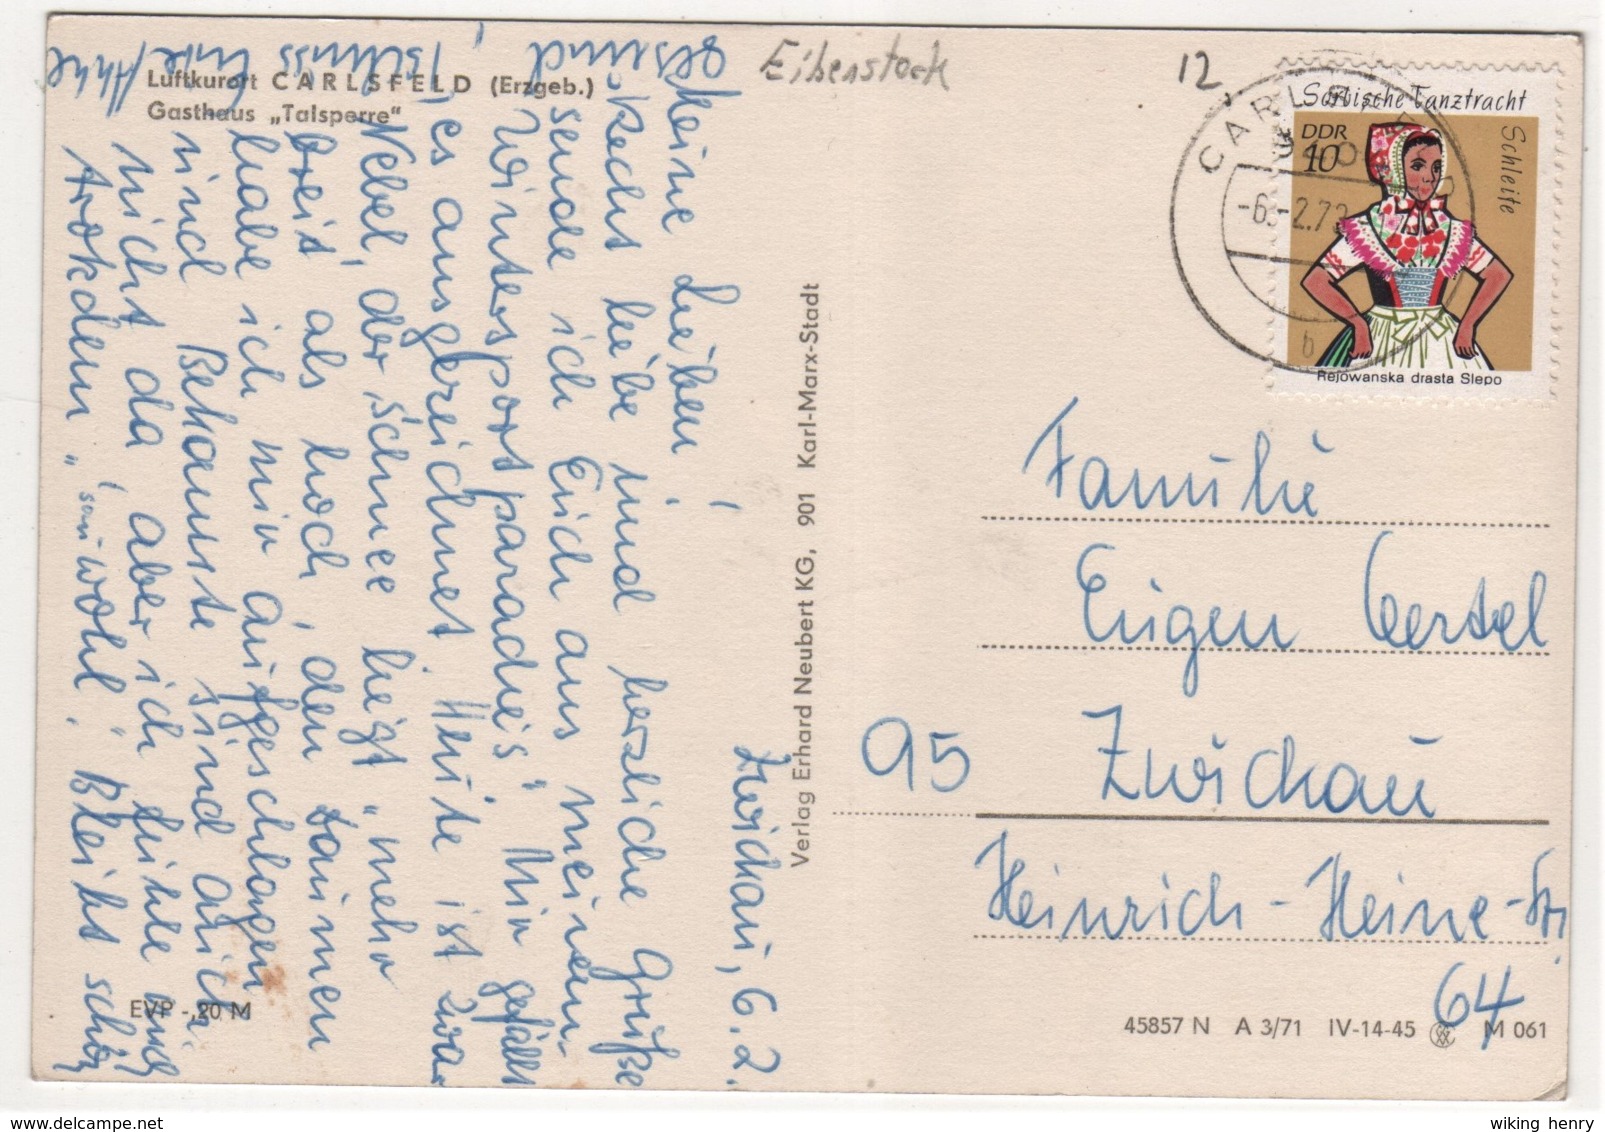 Luftkurort CARLSFELD (Erzgeb.)
Gasthaus „Talsperre“
Eibenstock
12,
Zwickau, 6.2.
Meine Lieben!
Recht liebe und herzliche Grüße
sende ich Euch aus meinem
„Wintersportparadies“. Mir gefällt
es ausgezeichnet. Heute ist zwar
Nebel, der Schnee liegt „mehr
breit als hoch“, den Daumen
habe ich mir aufgeschlagen
und Bekannte sind auch
nicht da, aber ich fühle mich
trotzdem „sauwohl“. Bleibt schön
gesund,
Tschüss Eure
Verlag Erhard Neubert KG, 901 Karl-Marx-Stadt
EVP -,20 M
CARLSFELD
-6.-2.73
b
Sorbische Tanztracht
DDR
10
Schleife
Rejowanska drasta Slepo
Familie
Eugen Oertel
95 Zwickau
Heinrich-Heine-Str.
64
45857 N A 3/71 IV-14-45 M 061
wiking henry